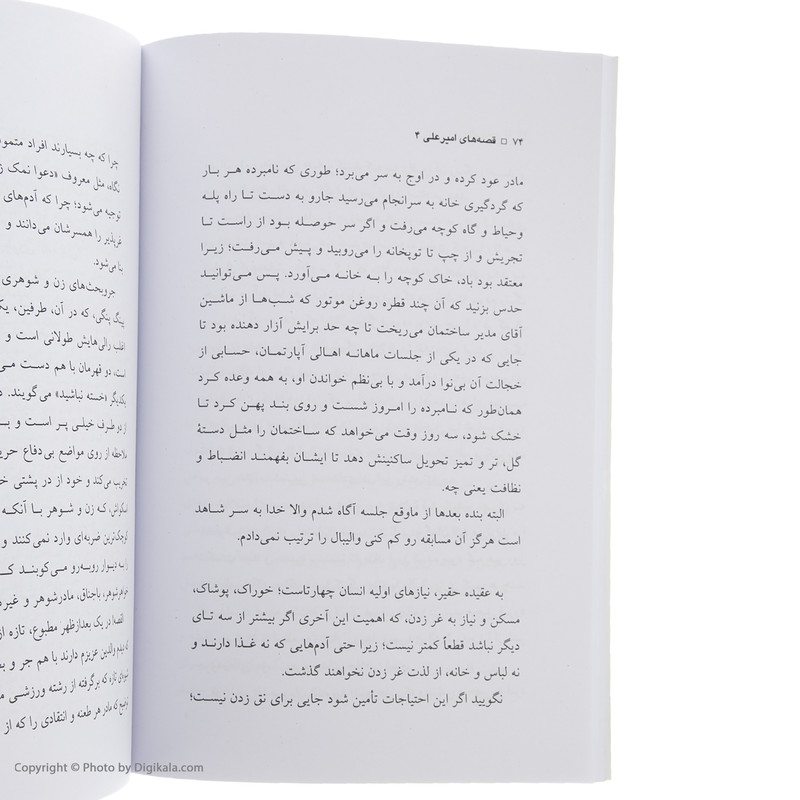 ۷۴ □ قصه‌های امیرعلی ۴
مادر عود کرده و در اوج به سر می‌برد؛ طوری که نامبرده هر بار
که گردگیری خانه به سرانجام می‌رسید جارو به دست تا راه پله
وحیاط و گاه کوچه می‌رفت و اگر سر حوصله بود از راست تا
تجریش و از چپ تا توپخانه را می‌روبید و پیش می‌رفت؛ زیرا
معتقد بود باد، خاک کوچه را به خانه می‌آورد. پس می‌توانید
حدس بزنید که آن چند قطره روغن موتور که شب‌ها از ماشین
آقای مدیر ساختمان می‌ریخت تا چه حد برایش آزار دهنده بود تا
جایی که در یکی از جلسات ماهانه اهالی آپارتمان، حسابی از
خجالت آن بی‌نوا درآمد و با بی‌نظم خواندن او، به همه وعده کرد
همان‌طور که نامبرده را امروز شست و روی بند پهن کرد تا
خشک شود، سه روز وقت می‌خواهد که ساختمان را مثل دستهٔ
گل، تر و تمیز تحویل ساکنینش دهد تا ایشان بفهمند انضباط و
نظافت یعنی چه.
البته بنده بعدها از ماوقع جلسه آگاه شدم والا خدا به سر شاهد
است هرگز آن مسابقه رو کم کنی والیبال را ترتیب نمی‌دادم.
به عقیده حقیر، نیازهای اولیه انسان چهارتاست؛ خوراک، پوشاک،
مسکن و نیاز به غر زدن، که اهمیت این آخری اگر بیشتر از سه تای
دیگر نباشد قطعاً کمتر نیست؛ زیرا حتی آدم‌هایی که نه غذا دارند و
نه لباس و خانه، از لذت غر زدن نخواهند گذشت.
نگویید اگر این احتیاجات تأمین شود جایی برای نق زدن نیست؛
چرا که چه بسیارند افراد
نگاه، مثل معروف «دعوا نمک
توجیه می‌شود؛ چرا که آدم‌های
را همسرشان می‌دانند و
می‌شود.
جروبحث‌های زن و شوهری
پنگی، که در آن، طرفین،
اغلب رالی‌هایش طولانی است و
است، دو قهرمان با هم دست
یکدیگر «خسته نباشید» می‌گویند.
از دو طرف خیلی پر است و
ملاحظه از روی مواضع بی‌دفاع
تخریب می‌کند و خود از در پشتی
اسکواش، که زن و شوهر با آنکه
کوچک‌ترین ضربه‌ای وارد نمی‌کنند و
را به دیوار روبه‌رو می‌کوبند
خواهرشوهر، باجناق، مادرشوهر و غیره
در یک بعدازظهر مطبوع، تازه از
دیدم والدین عزیزم دارند با هم جر و
تازه که برگرفته از رشته ورزشی
که مادر هر طعنه و انتقادی را که از
Copyright © Photo by Digikala.com